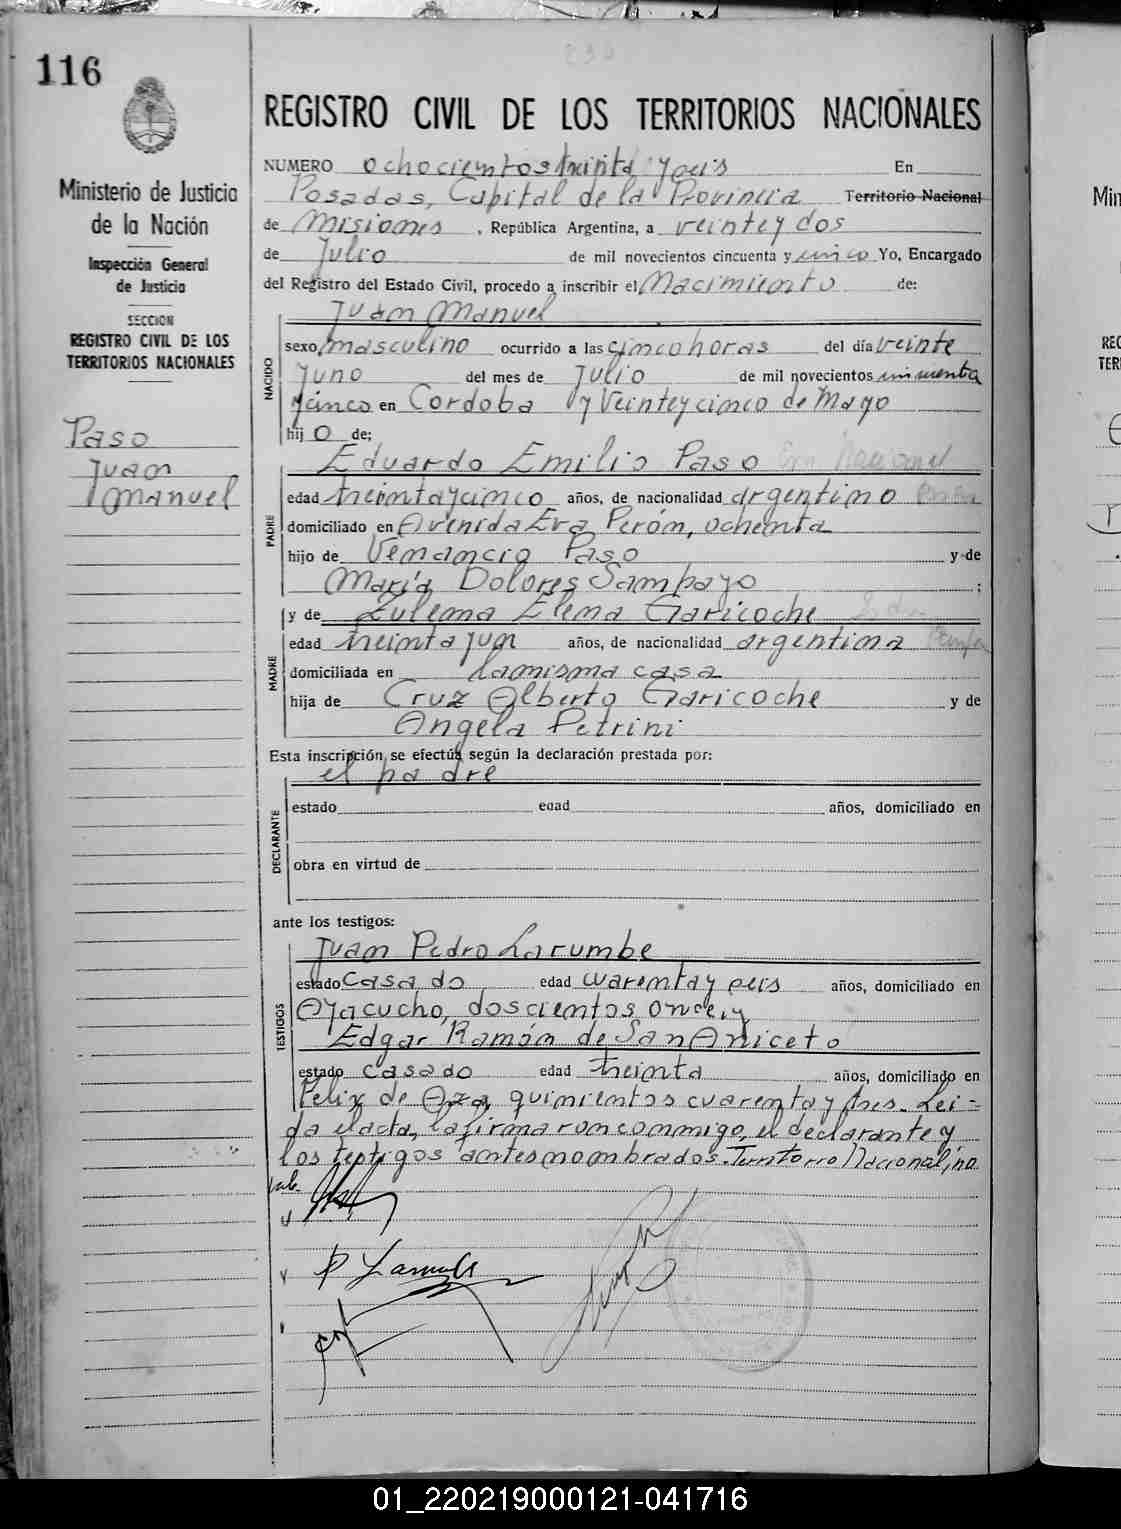 116
REGISTRO CIVIL DE LOS TERRITORIOS NACIONALES
Ministerio de Justicia
de la Nación
Inspección General
de Justicia
SECCION
REGISTRO CIVIL DE LOS
TERRITORIOS NACIONALES
Paso
Juan
Manuel
NUMERO ochocientos treinta y seis En
Posadas, Capital de la Provincia Territorio Nacional
de Misiones , República Argentina, a veinte y dos
de Julio de mil novecientos cincuenta y cinco Yo, Encargado
del Registro del Estado Civil, procedo a inscribir el Nacimiento de:
Juan Manuel
NACIDO
sexo masculino ocurrido a las cinco horas del día veinte
y uno del mes de Julio de mil novecientos cincuenta
y cinco en Cordoba y Veinte y cinco de Mayo
hij o de:
Eduardo Emilio Paso
PADRE
edad treinta y cinco años, de nacionalidad argentino
domiciliado en Avenida Eva Perón, ochenta
hijo de Venancio Paso y de
María Dolores Sampayo ;
y de Zulema Elena Garicoche
MADRE
edad treinta y un años, de nacionalidad argentina
domiciliada en la misma casa
hija de Cruz Alberto Garicoche y de
Angela Petrini
Esta inscripción se efectúa según la declaración prestada por:
el padre
DECLARANTE
estado edad años, domiciliado en
obra en virtud de
ante los testigos:
Juan Pedro Larumbe
TESTIGOS
estado casado edad cuarenta y seis años, domiciliado en
Ayacucho, doscientos once, y
Edgar Ramón de San Aniceto
estado casado edad treinta años, domiciliado en
Felix de Aza, quinientos cuarenta y tres. Lei-
da el acta, la firman conmigo, el declarante y
los testigos antes nombrados. Territorio Nacional, no
vale.
P Larumbe
01_220219000121-041716